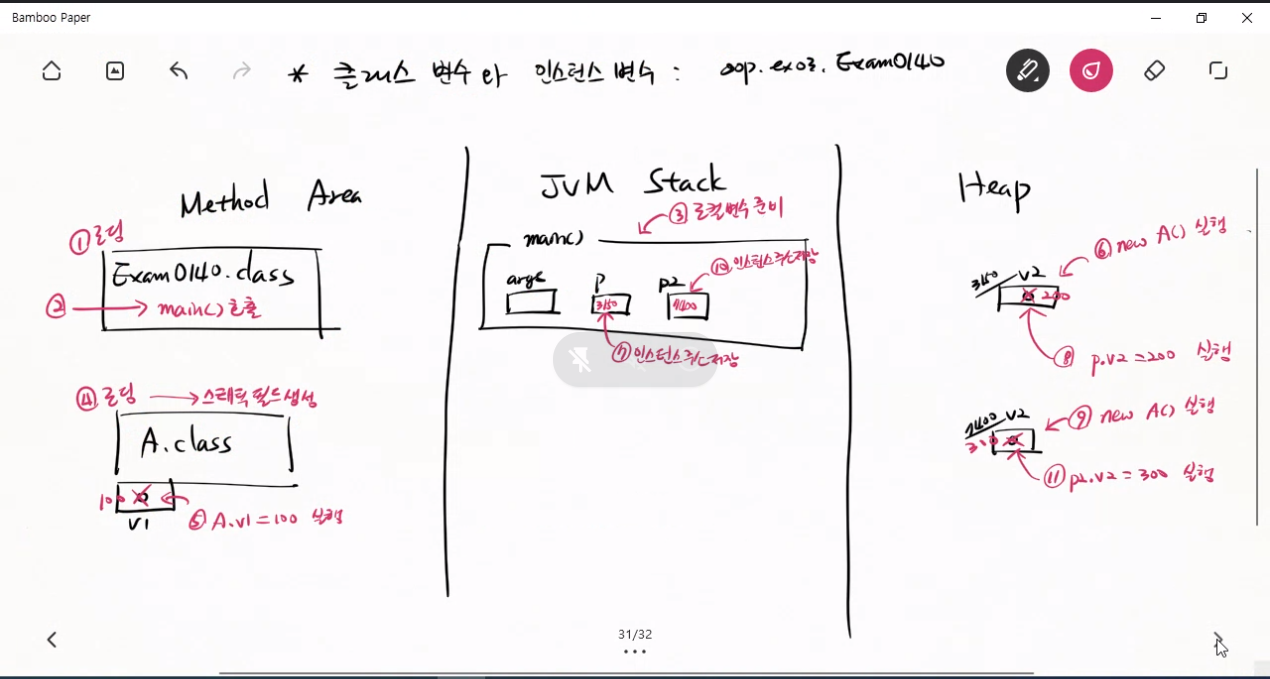 Bamboo Paper
* 클래스 변수와 인스턴스 변수 : oop.ex03.Exam0140
Method Area
① 로딩
Exam0140.class
② → main() 호출
④ 로딩 → 스태틱 필드 생성
A.class
100 0
V1
⑤ A.v1 = 100 실행
JVM Stack
③ 로컬변수 준비
main()
⑩ 인스턴스 주소 저장
args p p2
3150 7400
⑦ 인스턴스 주소 저장
Heap
⑥ new A() 실행
3150 V2
0 200
⑧ p.v2 = 200 실행
⑨ new A() 실행
7400 V2
300 0
⑪ p2.v2 = 300 실행
31/32